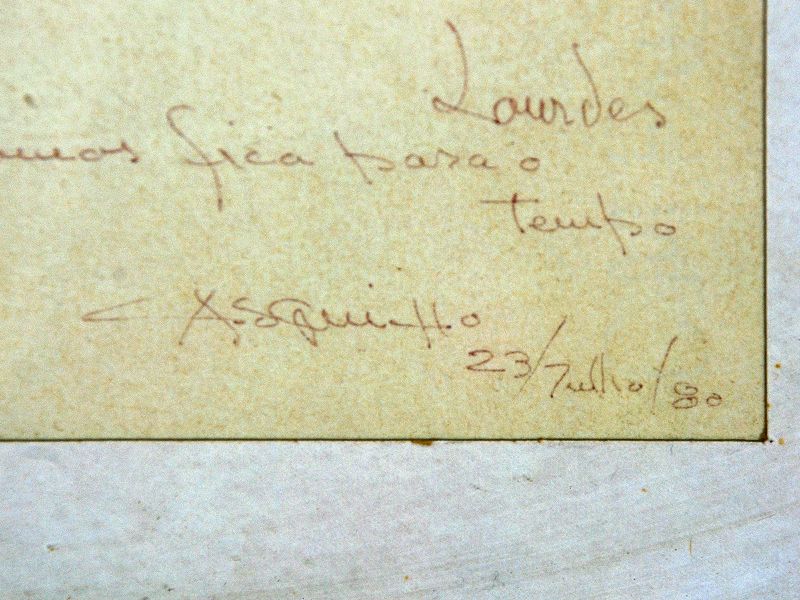 Lourdes
fica para o
tempo
Casquilho
23/Julho/80